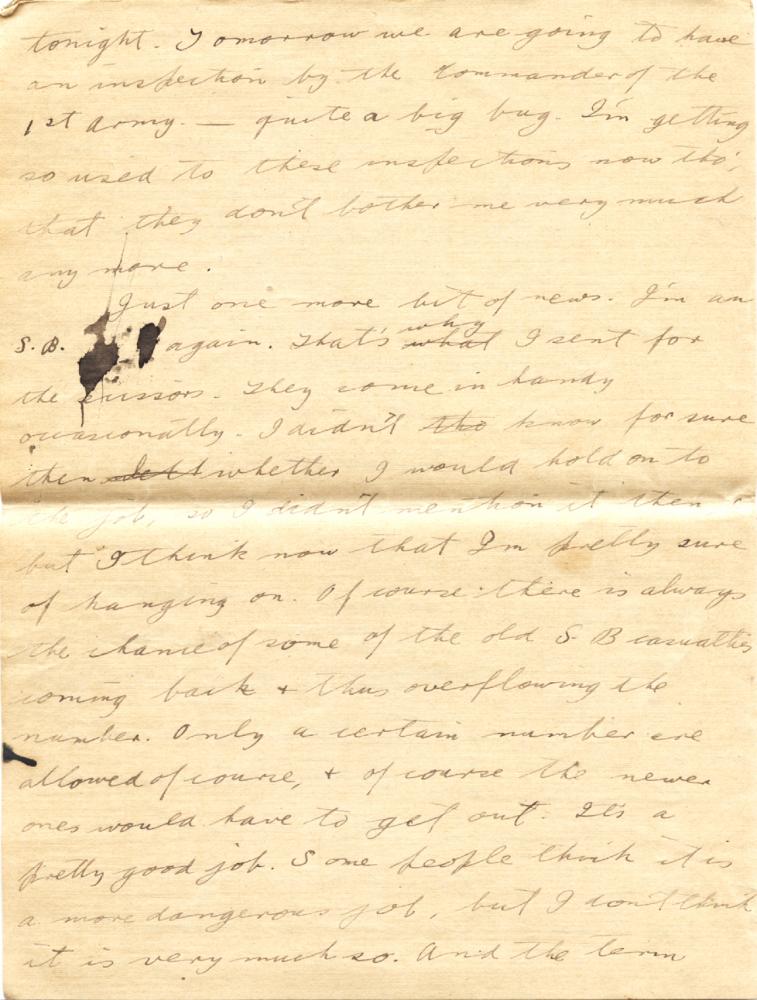 tonight. Tomorrow we are going to have
an inspection by the Commander of the
1st Army. — quite a big bug. I'm getting
so used to these inspections now tho',
that they don't bother me very much
any more.
Just one more bit of news. I'm an
S. B. again. That's what why I sent for
the scissors. They come in handy
occasionally. I didn't tho know for sure
then whether I would hold on to
the job, so I didn't mention it then
but I think now that I'm pretty sure
of hanging on. Of course there is always
the chance of some of the old S. B casualties
coming back + thus overflowing the
number. Only a certain number are
allowed of course, + of course the newer
ones would have to get out. It's a
pretty good job. Some people think it is
a more dangerous job, but I don't think
it is very much so. And the term